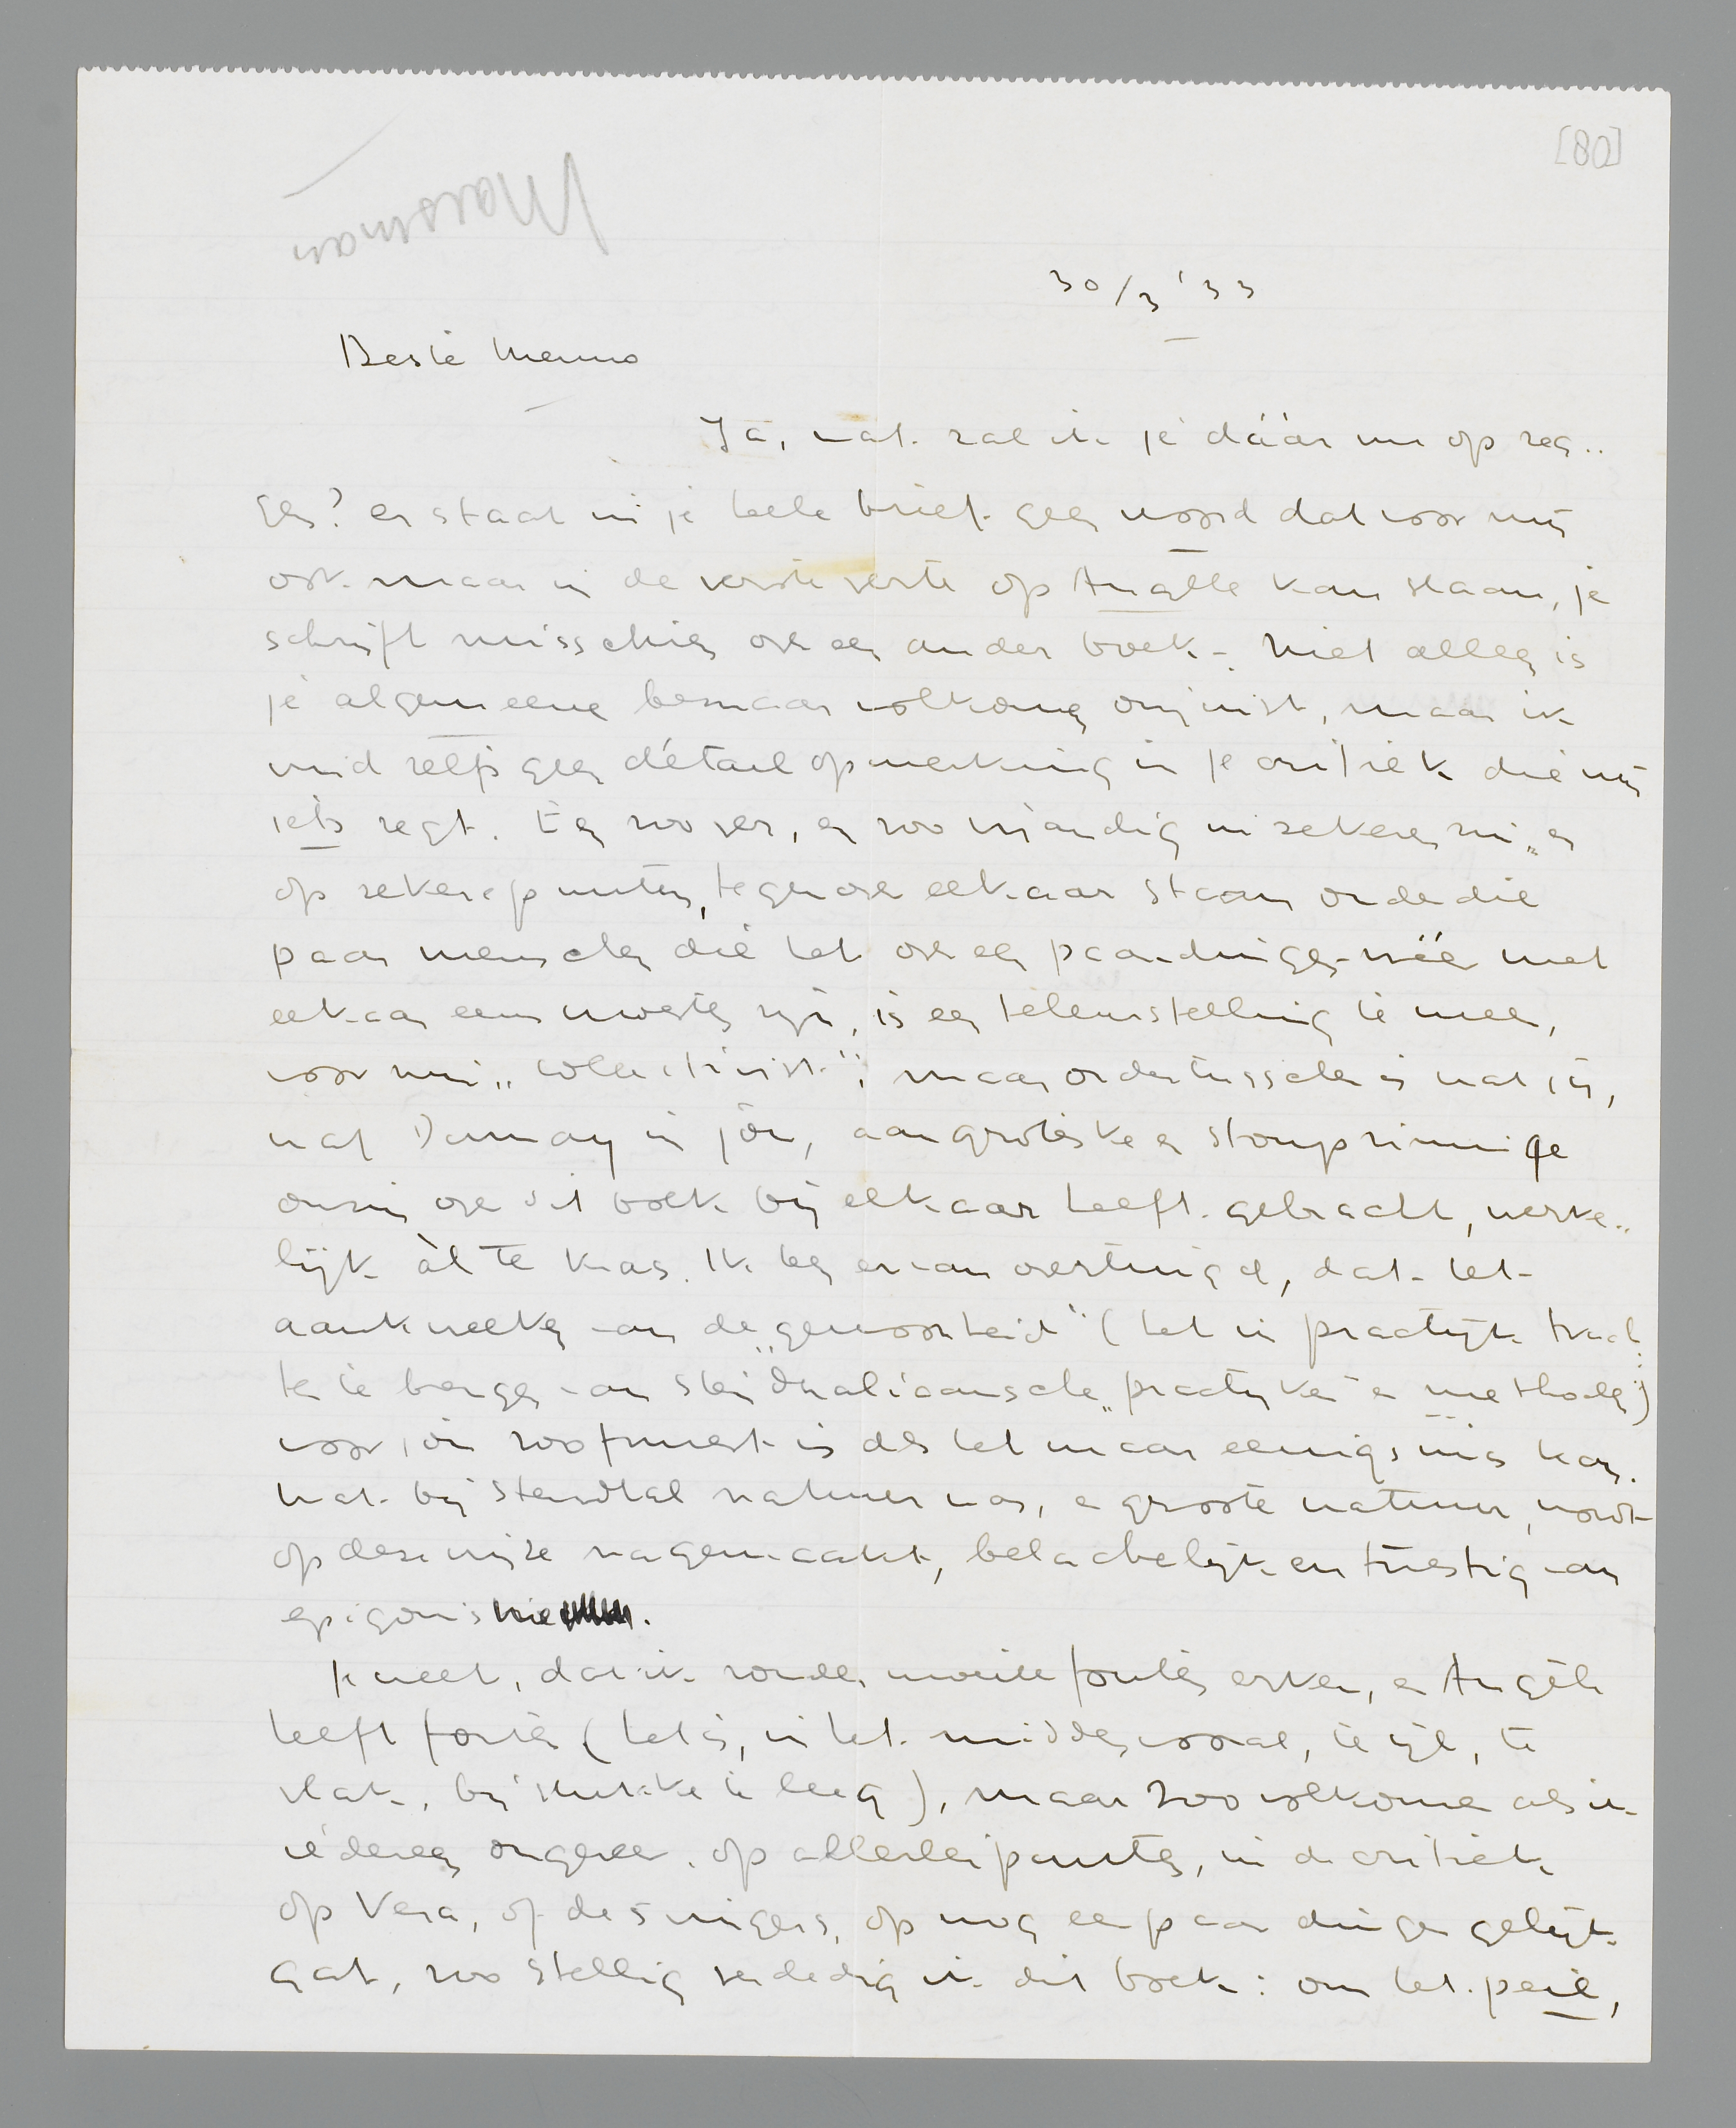 [80]
Marsman
30/3 '33
Beste Menno
Ja, wat zal ik je dáár nu op zeg..
gen? er staat in je heele brief geen woord dat voor mij
ook maar in de verste verte op Angèle kan slaan, je
schrijft misschien over een ander boek -. Niet alleen is
je algemeene bezwaar volkomen onjuist, maar ik
vind zelfs geen détailopmerking in je critiek die mij
iets zegt. En zoo ver, en zoo vijandig in zekeren zin „ en
op zekere punten, tegenover elkaar staan onder die
paar menschen die het over een paar dingen wèl met
elkaar eens moeten zijn, is een teleurstelling te meer,
voor mij „collectivist"; maar ondertusschen is wat jij,
wat Dumay in jou, aan groteske en stompzinnige
onzin over dit boek bij elkaar heeft gebracht, werke..
lijk àl te kras. Ik ben ervan overtuigd, dat het
aankweeken van de „gewoonheid" (het in practijk trach..
ten te brengen van Stendhaliaansche „practijken" en methoden)
voor jou zoo funest is als het maar eenigszins kan.
Wat bij Stendhal natuur was, en groote natuur, wordt
op deze wijze nagemaakt, belachelijk en triestig van
epigonisme.
Je weet, dat ik zonder moeite fouten erken, en Angèle
heeft fouten (het is, in het midden vooral, te ijl, te
vlak, bij stukken te leeg), maar zoo volkomen als ik
iedereen ongeveer op allerlei punten, in de critiek
op Vera, of de 5 vingers, op nog een paar dingen gelijk
gaf, zoo stellig verdedig ik dit boek: om het peil,